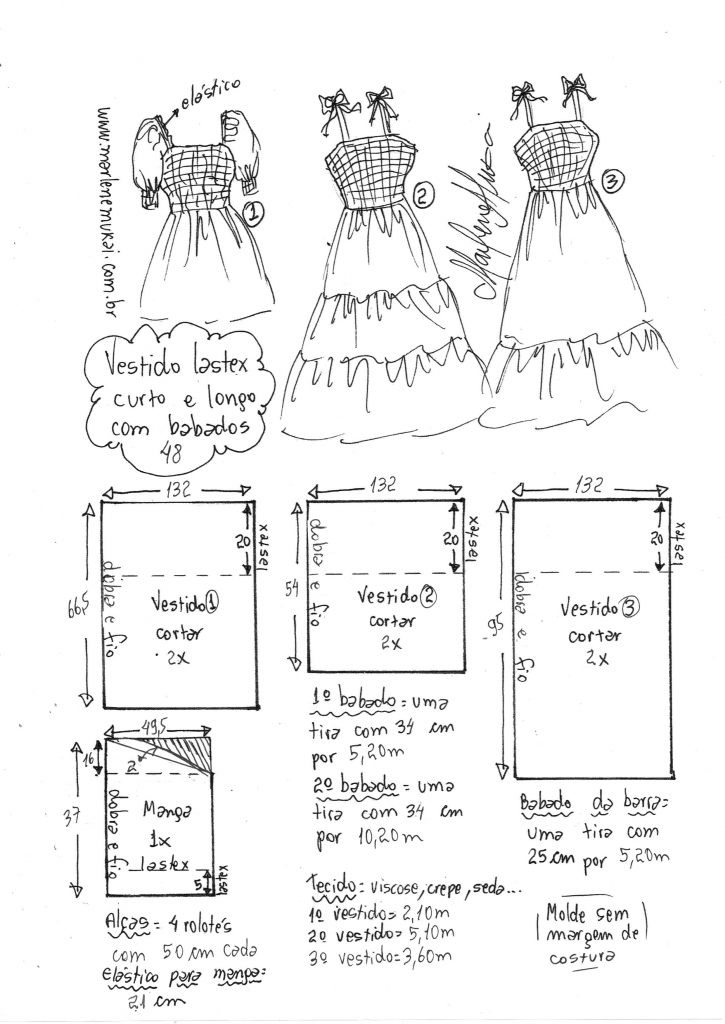 elástico
www.marlenemukai.com.br
1
2
3
Marlene Mukai
Vestido lastex
curto e longo
com babados
48
132
20
lastex
66,5
dobra e fio
Vestido 1
cortar
2x
132
20
lastex
54
dobra e fio
Vestido 2
cortar
2x
132
20
lastex
95
dobra e fio
Vestido 3
cortar
2x
49,5
16
2
37
dobra e fio
Manga
1x
lastex
5
lastex
Alças = 4 rolotês
com 50 cm cada
elástico para manga =
21 cm
1º babado = uma
tira com 34 cm
por 5,20m
2º babado = uma
tira com 34 cm
por 10,20m
Tecido = viscose, crepe, seda...
1º vestido = 2,10m
2º vestido = 5,10m
3º vestido = 3,60m
Babado da barra =
uma tira com
25 cm por 5,20m
Molde sem
margem de
costura